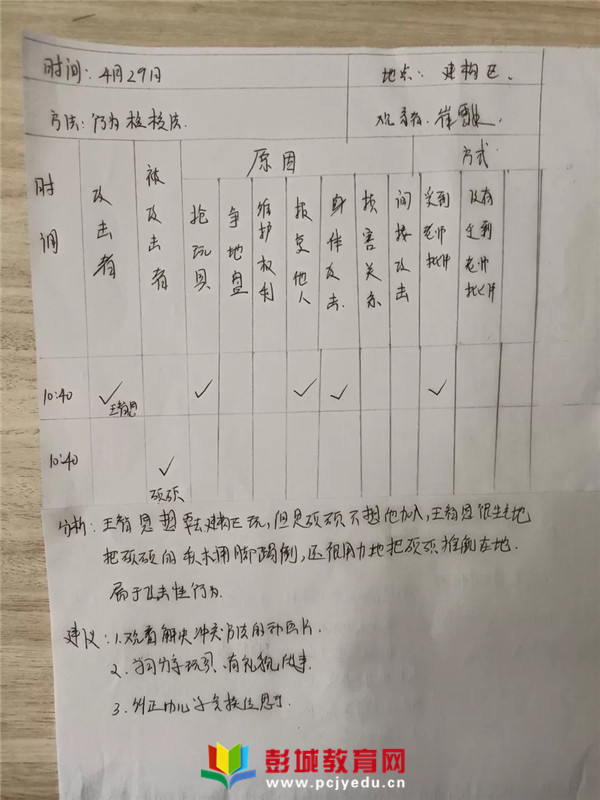 时间：4月29日 地点：建构区.
方法：行为检核法. 观察者：崔
原因 方式
时间 攻击者 被攻击者 抢玩具 争地盘 维护权利 报复他人 身体攻击. 损害关系 间接攻击 受到老师批评 没有受到老师批评
10:40 ✓ 王智恩 ✓ ✓ ✓ ✓
10:40 ✓ 硕硕
分析：王智恩想去建构区玩,但是硕硕不想他加入,王智恩很生气地
把硕硕的积木用脚踢倒,还很用力地把硕硕推倒在地.
属于攻击性行为.
建议：1.观看解决冲突方法的动画片.
2.学习分享玩具、有礼貌故事.
3.纠正幼儿
彭城教育网
www.pcjyedu.cn